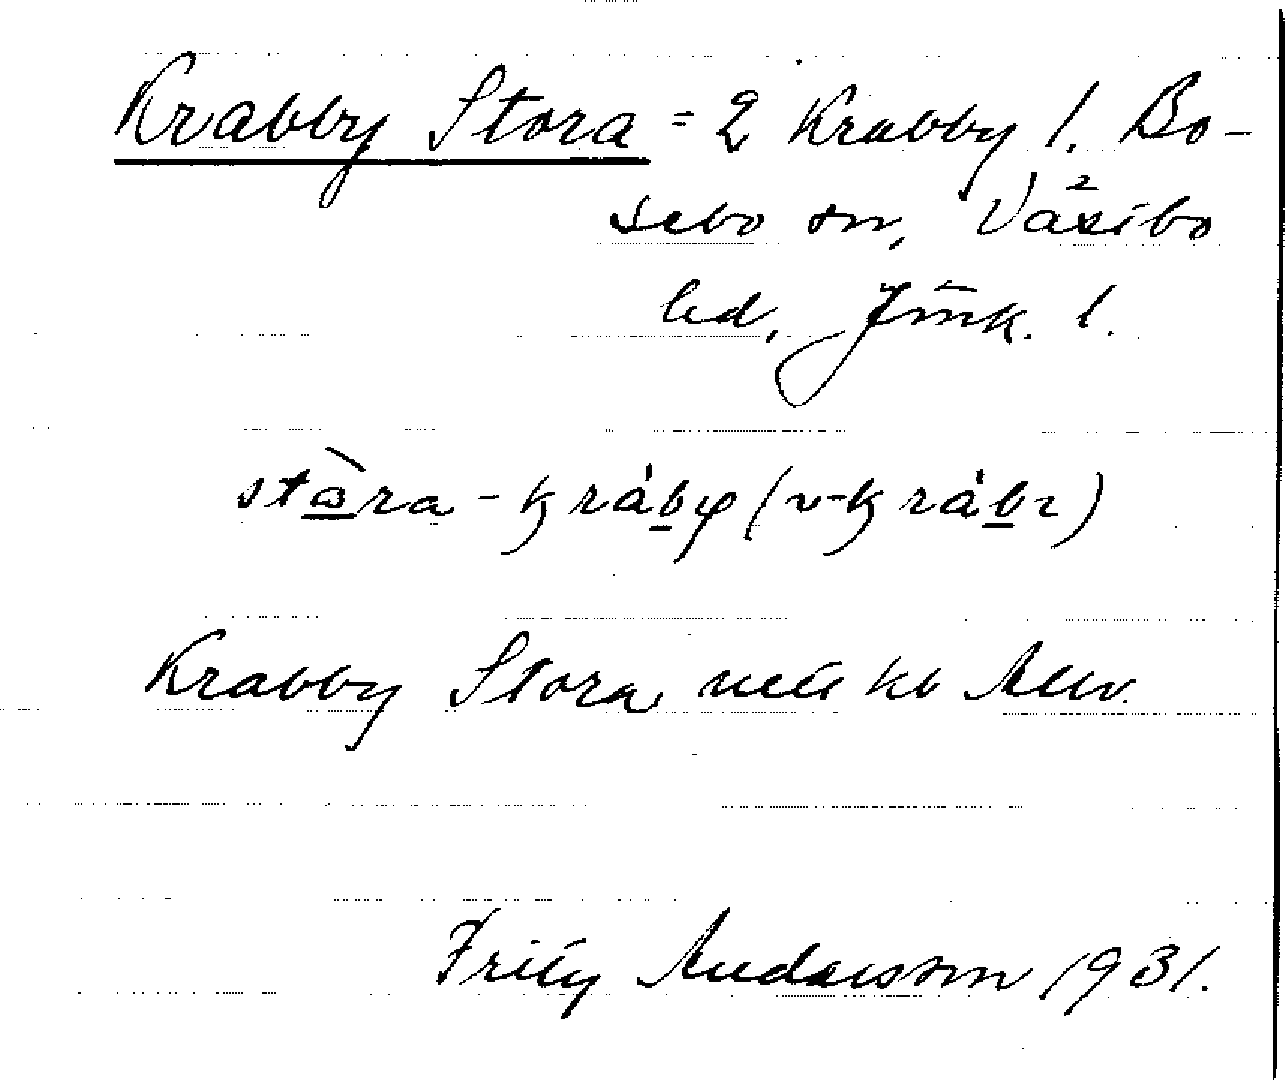 Krabby Stora = 2 Krabby l. Bo-
sebo sn, Västbo
hd, Jönk. l.
stòra-kráby (v-krábı)
Krabby Stora
Fritz Andersson 1931.